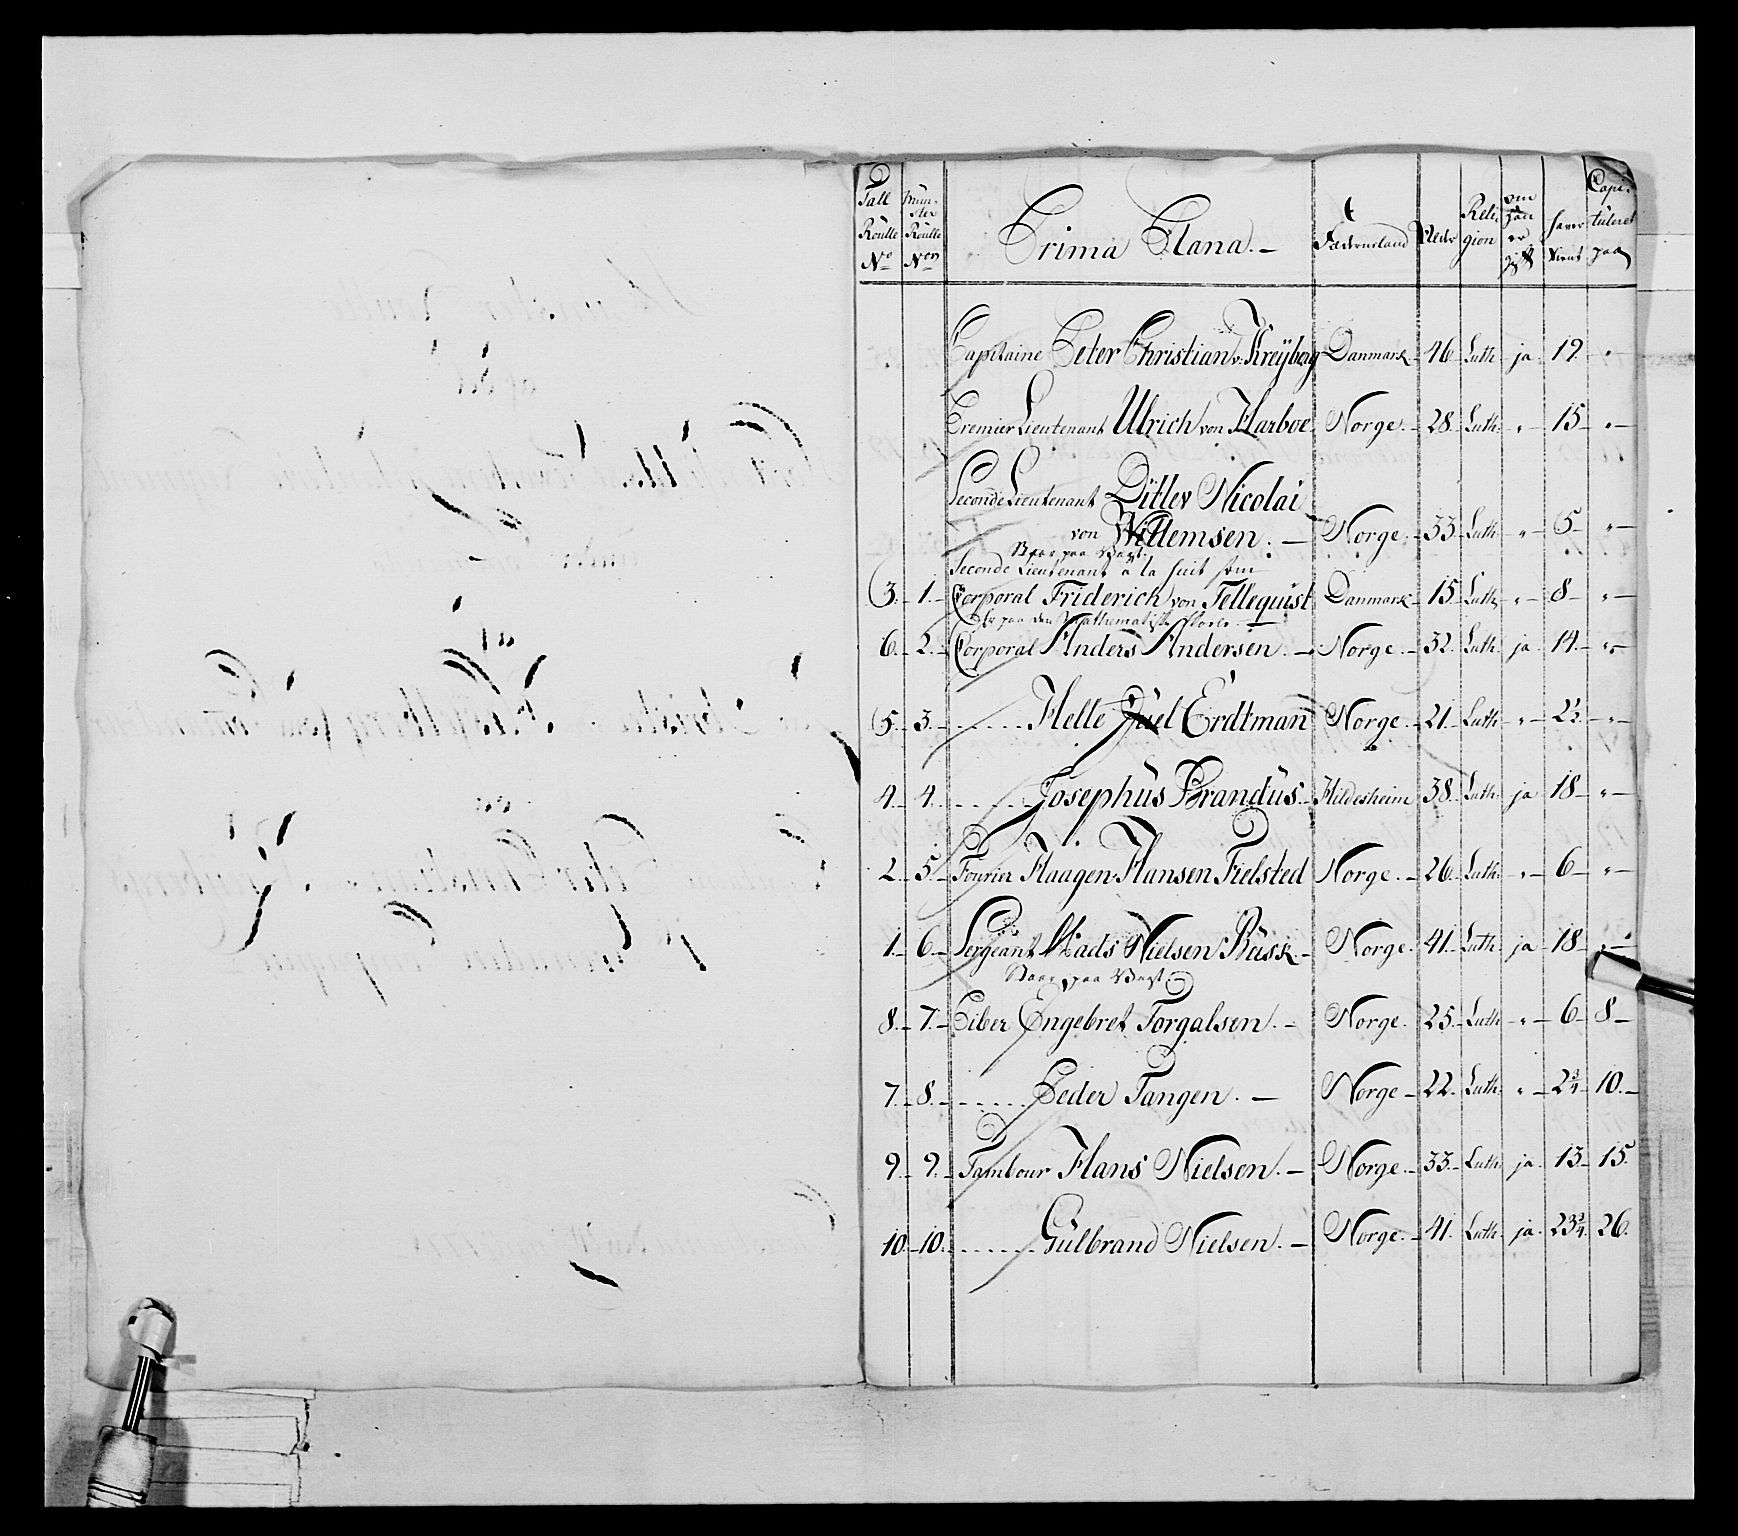 Tall Roulle No | Mün-ster Roulle Non | Prima Plana.- | Fæderneland | Alder | Reli-gion | om han er gift | haver tient | Capi-tuleret paa
Capitaine Peter Christian v: Kreÿberg | Danmark | 46 | Luth | ja | 19 | "
Premier Lieutenant Ulrich von Harboe | Norge | 28 | Luth | " | 15 | "
Seconde Lieutenant Ditlev Nicolai
von Willemsen | Norge | 33 | Luth | " | 5 | "
Staar paa Vagt
Seconde Lieutenant a la suit som
3 | 1 | Corporal Friderich von Tellequist | Danmark | 15 | Luth | " | 8 | "
Er paa den Mathematiske Skoele
6 | 2 | Corporal Anders Andersen | Norge | 32 | Luth | ja | 14 | "
5 | 3 | Helle Juel Erdtman | Norge | 21 | Luth | " | 2½ | "
4 | 4 | Josephus Brandüs | Hildesheim | 38 | Luth | ja | 18 | "
2 | 5 | Fourier Haagen Hansen Fielsted | Norge | 26 | Luth | " | 6 | "
1 | 6 | Sergeant Mads Nielsen Büsk | Norge | 41 | Luth | ja | 18 | "
Staar paa Vagt
8 | 7 | Piber Engebret Torgalsen | Norge | 25 | Luth | " | 6 | 8
7 | 8 | Peder Tangen | Norge | 22 | Luth | " | 2¾ | 10
9 | 9 | Tambour Hans Nielsen | Norge | 33 | Luth | ja | 13 | 15
10 | 10 | Gülbrand Nielsen | Norge | 41 | Luth | ja | 23¾ | 26